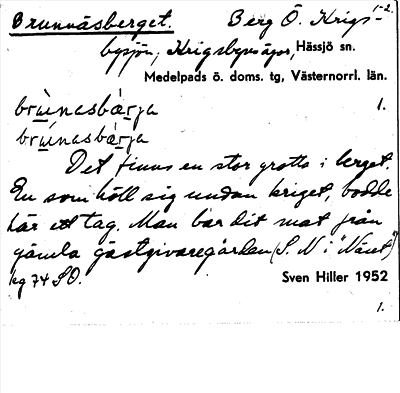 Brunnäsberget. Berg Ö. Krigs- 1-2.
bysjön, Krigsbyvågor, Hässjö sn.
Medelpads ö. doms. tg, Västernorrl. län.
brùnasbàrja 1.
brúnasbàrja
Det finns en stor grotta i berget.
En som höll sig undan kriget, bodde
här ett tag. Man bar dit mat från
gamla gästgivaregården (S. N i "Näset")
Sven Hiller 1952
1.